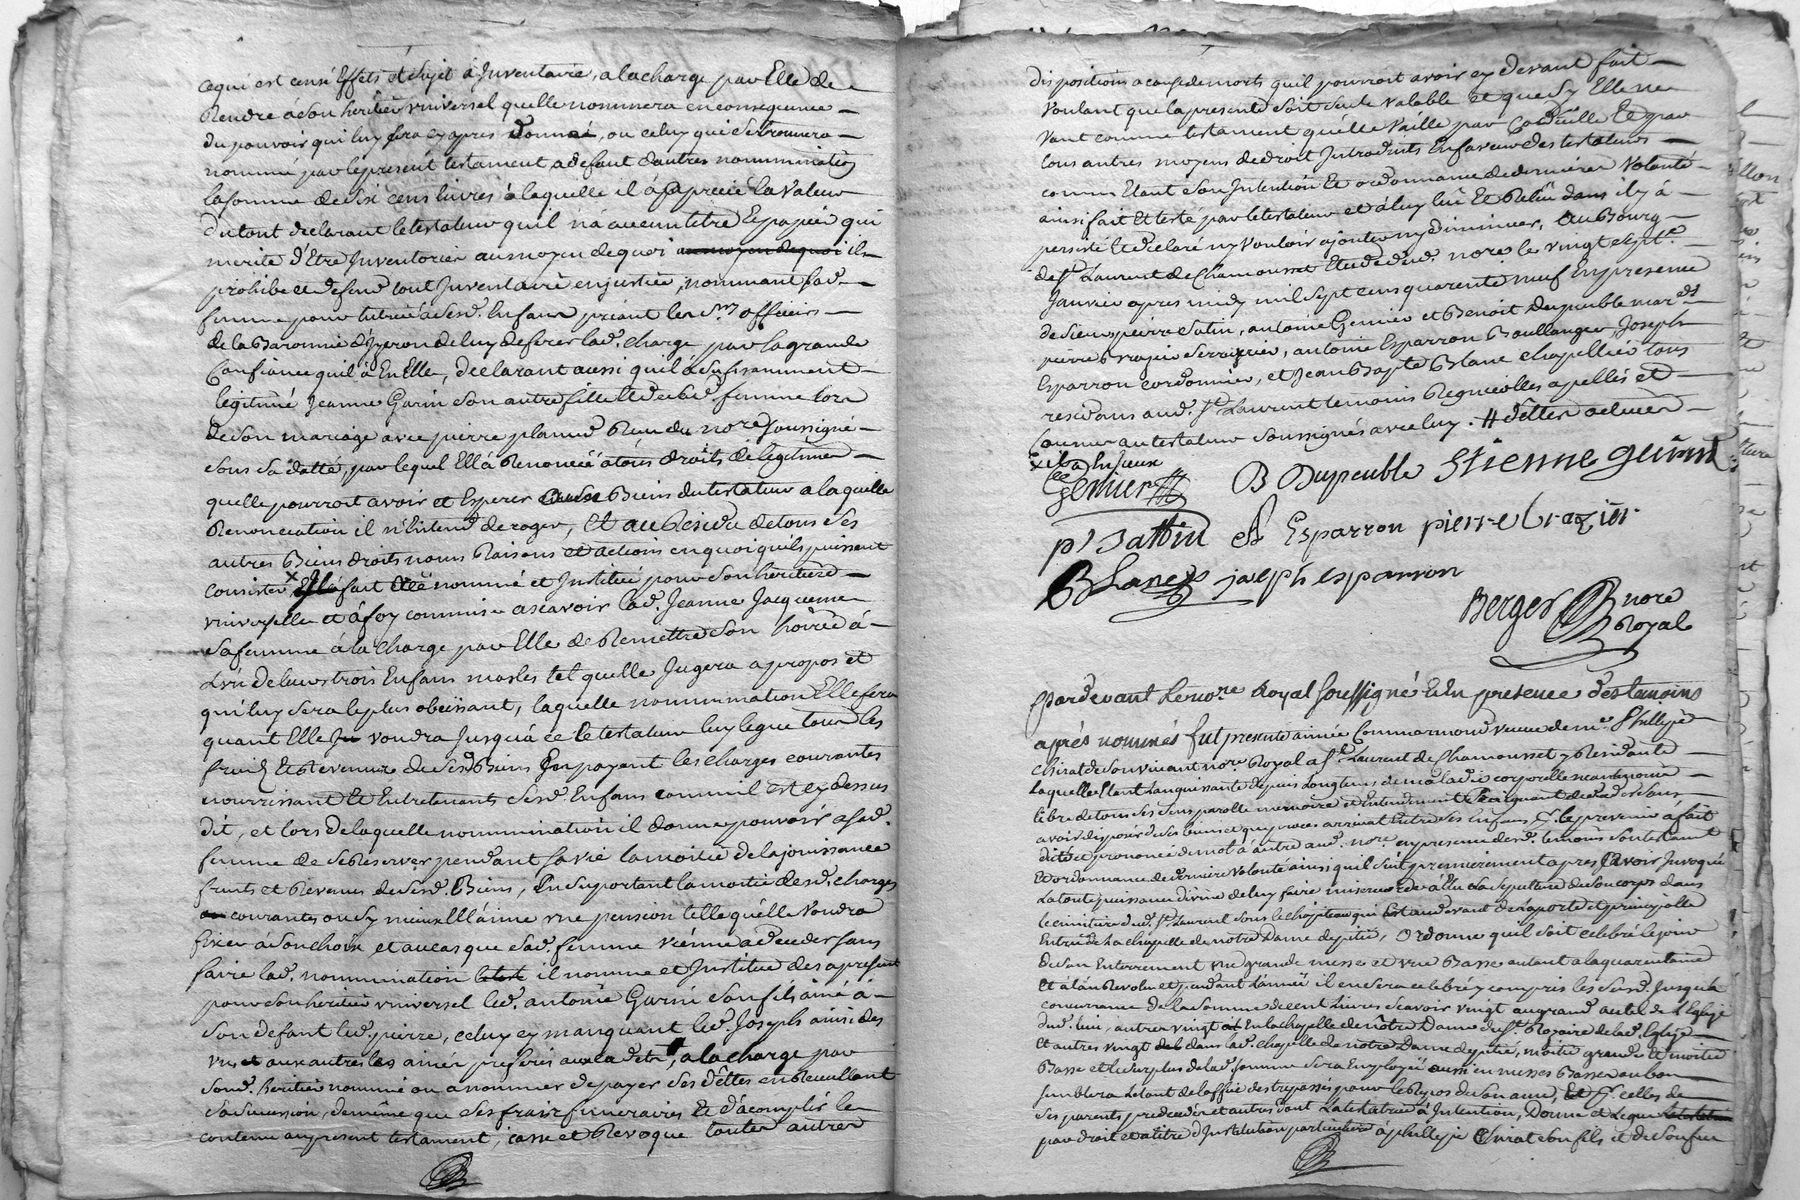 cequi est censé Effets et sujet a Inventaire, alacharge par Elle de
Rendre a son heritier universel quelle nommera en consequence
du pouvoir qui luy sera cy apres donné, ou celuy qui se trouvera
nommé par le present testament a defaut dautres nommination
la somme de six cens livres a laquelle il a apprecié la valeur
du tout declarant le testateur quil na aucun titre Et papier qui
merite d'Etre Inventorier au moyen de quoi au moyen de quoi il
prohibe et defend tout Inventaire en justice, nommant sad.
femme pour tutrice a sesd. Enfans priant les Srs officiers
de la Baronnie d'yzeron de luy deferer lad. charge par la grande
Confiance quil a En Elle, declarant aussi quil a suffisamment
legitimé Jeanne Garin son autre fille Et de sad. femme lors
de son mariage avec pierre planud Reçu du nore soussigné
sous sa datte, par lequel Ell'a Renoncé a tous droits de legitime
quelle pourroit avoir et Esperer Biens du testateur a laquelle
Renonciation il n'Entend deroger, Et au Residu de tous ses
autres Biens droits noms Raisons et actions en quoi quils puissent
consister x fait nommé et Institué pour son heritiere
universelle et a foy commise ascavoir lad. Jeanne Jacqueme
sa femme a la charge par Elle de Remettre son hoirie a
l'vn de leurs trois Enfans masles tel quelle Jugera apropos et
qui luy sera le plus obeissant, laquelle nommination Elle fera
quant Elle voudra Jusqu'a ce le testateur luy legue tous les
fruits Et Revenus de sesd. Biens En payant les charges courantes
nourrissant Et Entretenants sesd. Enfans comm'il est cy dessus
dit, et lors de laquelle nommination il donne pouvoir a sad.
femme de se Reserver pendant sa vie la moitie de la jouissance
fruits et Revenus de sesd. Biens, En suportant la moitie desd. charges
courantes ou sy mieux Ell'aime vne pension telle qu'elle voudra
fixer a son choix et au cas que sad. femme vienne a deceder sans
faire lad. nommination il nomme et Institue des a present
pour son heritier universel led. antoine Garin son fils ainé a
son defaut led. pierre, celuy cy manquant led. Joseph ainsi des
vns aux autres les ainés preferés, a la charge par
sond. heritier nommé ou a nommer de payer ses dettes en Recueillant
sa succession, de même que ses frais funeraires Et d'acomplir le
contenu au present testament, casse et Revoque toutes autres
dispositions a cause de morts quil pourroit avoir cy devant fait
voulant que la presente soit seule valable et que sy Elle ne
vaut comme testament qu'elle vaille par Codicille Et par
tous autres moyens de droit Introduits En faveur des testateurs
comme Etant son Intention Et ordonnance de derniere volonté
ainsi fait Et testé par le testateur et a luy lu Et Relu dans il y a
persisté Et declaré ny vouloir ajouter ny diminuer, au Bourg
de St Laurent de Chamousset Etude dud. nore le vingt sept
Janvier apres midy mil sept cens quarente neuf En presence
de sieurs pierre Satin, antoine Gemier et Benoit Dupeuble mards
pierre Brazier serrurier, antoine Esparron Boullanger Joseph
Esparron cordonnier, et Jean Bapte Blanc chapellier tous
residans aud. St Laurent temoins Regnicolles apellés et
connus au testateur soussignés avec luy.
Gemier B Dupeuble Etienne garin
p' Sattin A Esparron pierre brazier
Blanc joseph esparron
Berger nore
Royal
Pardevant Le nore Royal soussigné Et En presence des temoins
après nommés fut presente aimée Commarmond veuve de me Phillippe
Chirat de son vivant nore Royal a St Laurent de Chamousset y Residante
Laquelle Etant Languissante depuis Longtems de maladie corporelle neanmoins
libre de tous ses sens parolle memoire et Entendement craignant de deceder sans
avoir disposé de ses biens et que proces arrivat Entre ses Enfans pr. le prevenir a fait
dicté et prononcé de mot a autre aud. nore en presence desd. temoins son testament
Et ordonnance de derniere volonté ainsi quil suit premierement apres avoir Invoqué
La toute puissance divine de luy faire misericorde a Elu sa sepulture de son corps dans
le cimitiere dud. St Laurent sous le chapiteau qui Est audevant de la porte et principalle
Entrée de La chapelle de notre Dame de pitié, ordonne quil soit celebré le jour
de son Enterrement vne grande messe et vne Basse autant a la quarentaine
Et a lan Revolu et pendant lannée il en sera celebré y compris les susd. Jusqu'a
concurrance de la somme de cent Livres scavoir vingt au grand autel de L'Eglise
dud. lieu, autres vingt En la chapelle de nôtre Dame du St Rozaire de lad. Eglise
Et autres vingt dans lad. chapelle de notre Dame de pitié, moitié grande Et moitié
Basse et le surplus de lad. somme sera Employé aussi en messes Basses ou bon
semblera Le tout de loffice des trepassés pour le Repos de son ame, Et pr. celles de
ses parents predecedés et autres dont La testatrice a Intention, Donne et Legue
par droit et a titre d'Institution particuliere a phillippe Chirat son fils et de son feu